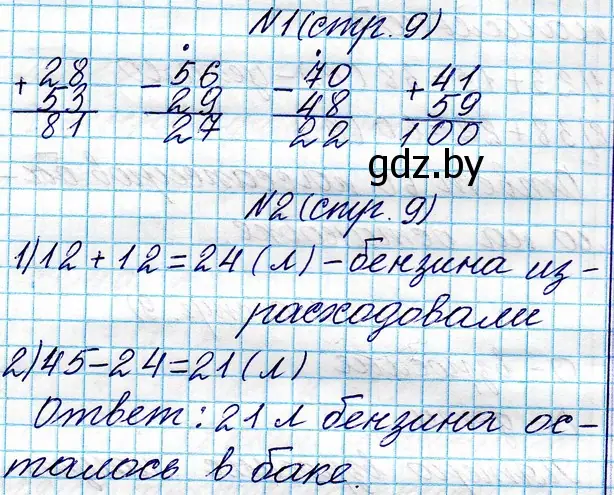 N1(стр. 9)
+28 -56 -70 +41
53 29 48 59
81 27 22 100
gdz.by
N2(стр. 9)
1)12+12=24(л)-бензина из-
расходовали
2)45-24=21(л)
Ответ: 21 л бензина ос-
талось в баке.